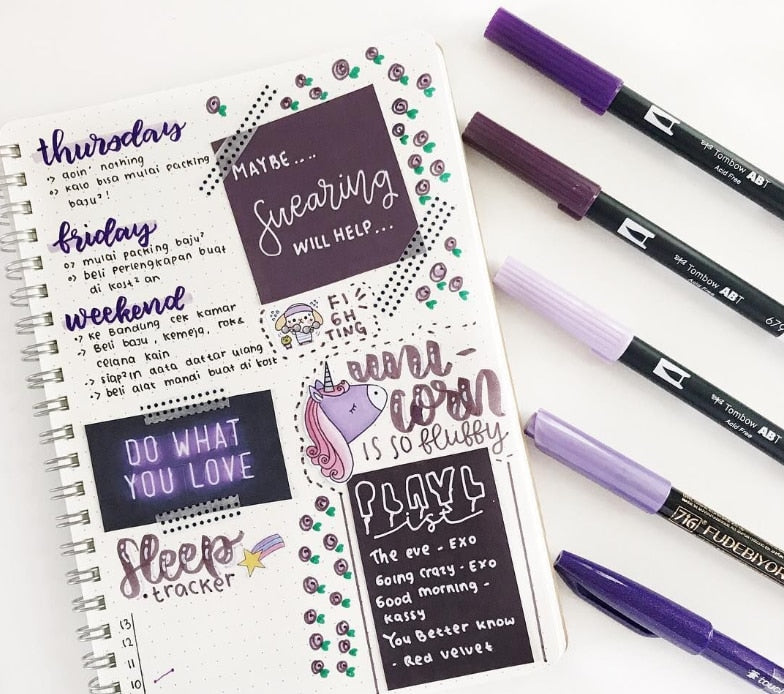 thursday
-> doin' nothing
-> kalo bisa mulai packing
baju?!
friday
-> mulai packing baju?
-> beli perlengkapan buat
di kost²an
weekend
-> ke Bandung cek kamar
-> Beli baju, kemeja, rok&
celana kain
-> siap²in data daftar ulang
-> beli alat mandi buat di kost
MAYBE....
Swearing
WILL HELP...
FI
GH
TING
uni-
corn
IS SO fluffy
DO WHAT
YOU LOVE
Sleep
tracker
13
12
11
10
PLAYL
ist
The eve - EXO
Going crazy - EXO
Good morning -
kassy
You Better Know
- Red velvet
Tombow ABT
Acid Free
Tombow ABT
Acid Free
67
Tombow ABT
Acid Free
ZIG FUDEBIYO